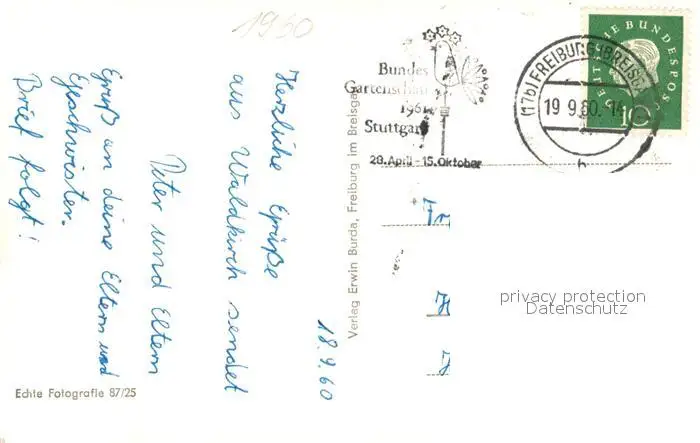 1960
18.9.60
Herzliche Grüße
aus Waldkirch sendet
Peter und Eltern
Gruß an deine Eltern und
Geschwister.
Brief folgt!
Echte Fotografie 87/25
Verlag Erwin Burda, Freiburg im Breisgau
Bundes
Gartenschau
1961
Stuttgart
28. April - 15. Oktober
(17b) FREIBURG (BREISGAU)
19.9.60.
h
DEUTSCHE BUNDESPOST
10
Fr
H
J
privacy protection
Datenschutz